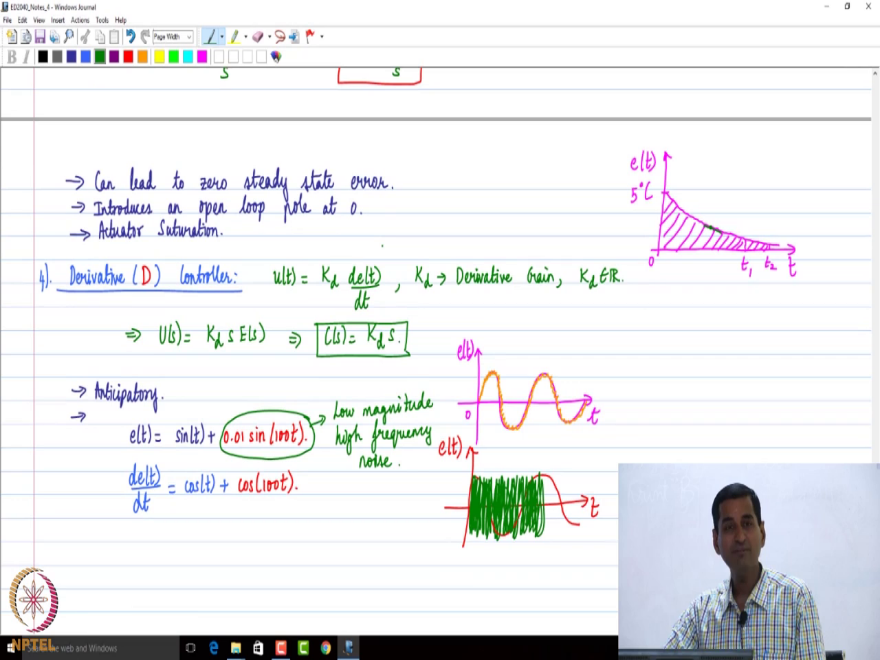 ED2040_Notes_4 - Windows Journal
File Edit View Insert Actions Tools Help
Page Width
B I
s
s
→ Can lead to zero steady state error.
→ Introduces an open loop pole at 0.
→ Actuator Saturation.
e(t)
5°C
0
t₁ t₂ t
4). Derivative (D) Controller: u(t) = K_d de(t)/dt, K_d → Derivative Gain, K_d ∈ ℝ.
⇒ U(s) = K_d s E(s) ⇒ C(s) = K_d s.
→ Anticipatory.
→
e(t) = sin(t) + 0.01 sin(100t). → Low magnitude high frequency noise.
de(t)/dt = cos(t) + cos(100t).
e(t)
0
t
e(t)
t
NPTEL
the web and Windows